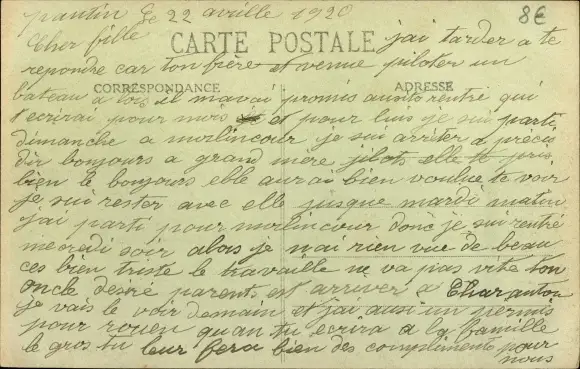 pantin le 22 avrille 1920
8€
Cher fille
CARTE POSTALE
jai tarder a te
repondre car ton frère et venue piloter un
CORRESPONDANCE
ADRESSE
bateau a il mavai promis ausito rentré qui
t'ecrirai pour mois et pour luis je sui parti
dimanche a morlincour je sui arrêter a précis
dir bonjours a grand mere elle te
bien le bonjours elle aurai bien voulue te voir
je sui rester avec elle jusque mardi matin
jai parti pour morlincour donc je sui rentré
mecredi soir alors je n'ai rien vue de beau
ces bien triste le travaille ne va pas vite ton
oncle desiré parent est arriver a Charanton
je vais le voir demain et j'ai ausi un permis
pour rouen quan tu ecrira a la famille
le gros tu leur fera bien des compliments pour
nous